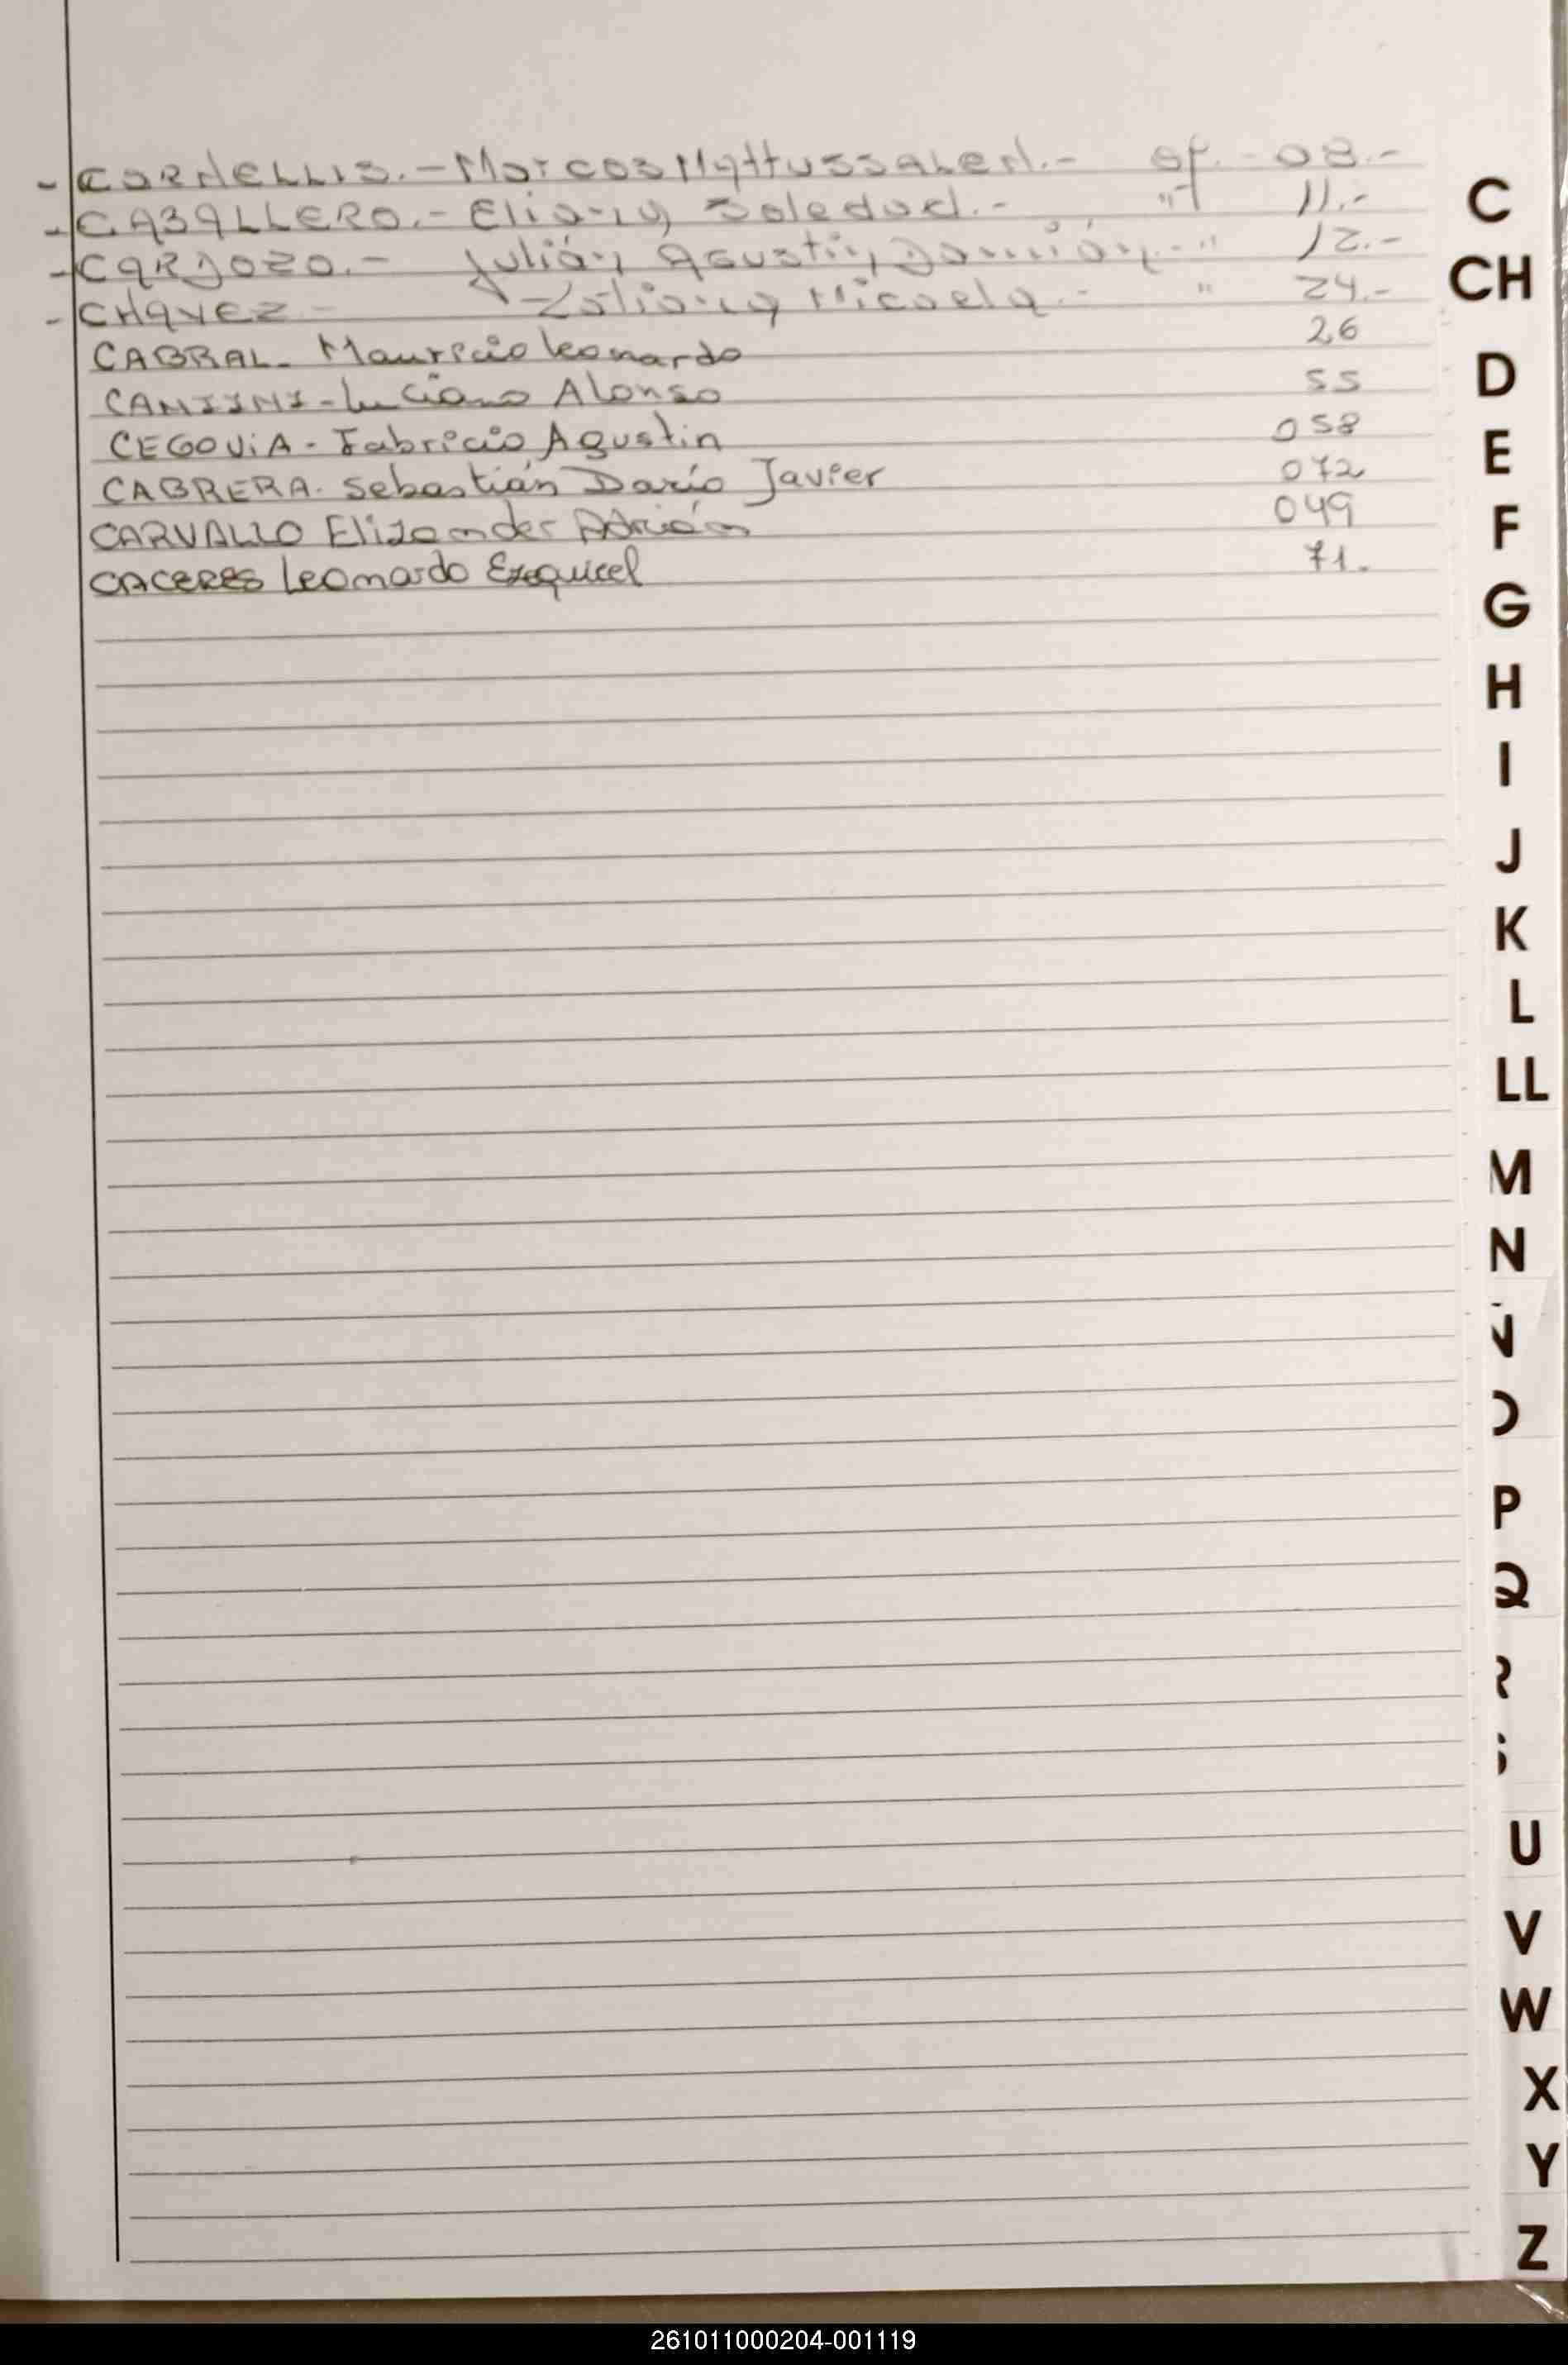 - CORNELLIS.- Marcos Mattussalen.- af.- 08.-
- CABALLERO.- Eliana Soledad.- " 11.-
- CARDOZO.- Julián Agustín Damián.- " 12.-
- CHAVEZ.- Micaela.- " 24.-
CABRAL- Mauricio Leonardo 26
Luciano Alonso 55
CEGOViA- Fabricio Agustin 058
CABRERA- Sebastián Darío Javier 072
CARVALLO Elizander Adrián 049
CACERES Leonardo Ezequiel 71.
C
CH
D
E
F
G
H
I
J
K
L
LL
M
N
Ñ
O
P
Q
R
S
U
V
W
X
Y
Z
261011000204-001119